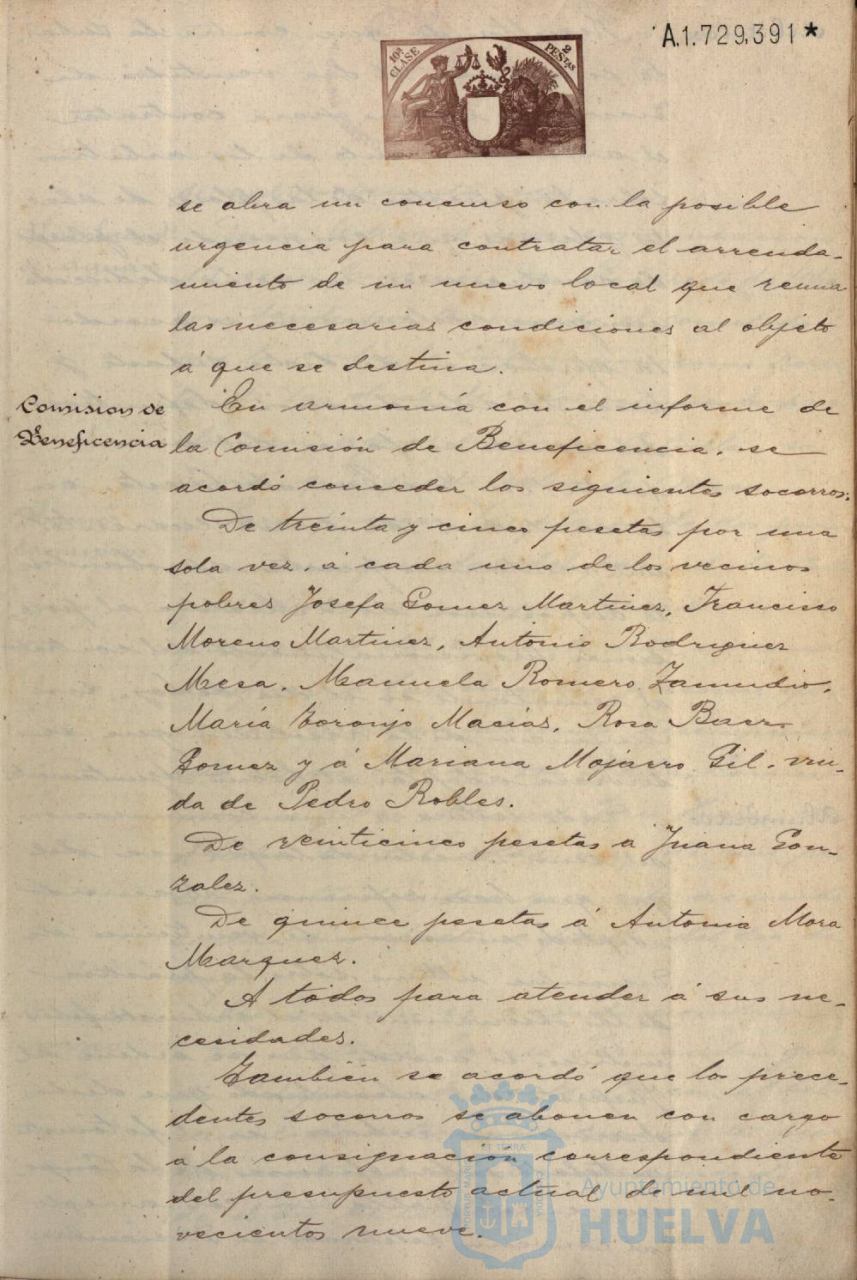 A.1.729,391*
10ª CLASE
2 PESTAS
se abra un concurso con la posible
urgencia para contratar el arrenda-
miento de un nuevo local que reuna
las necesarias condiciones al objeto
á que se destina.
Comision de
Beneficencia
En armonía con el informe de
la Comisión de Beneficencia, se
acordó conceder los siguientes socorros:
De treinta y cinco pesetas por una
sola vez, á cada uno de los vecinos
pobres Josefa Gomez Martinez, Francisco
Moreno Martinez, Antonio Rodriguez
Mesa, Manuela Romero Zamudio,
María Toronjo Macías, Rosa Baez
Gomez y á Mariana Mojarro Gil, viu-
da de Pedro Robles.
De veinticinco pesetas a Juana Gon-
zalez.
De quince pesetas á Antonia Mora
Marquez.
A todos para atender á sus ne-
cesidades.
También se acordó que los prece-
dentes socorros se abonen con cargo
á la consignación correspondiente
del presupuesto actual de mil no-
vecientos nueve.
Ayuntamiento de
HUELVA